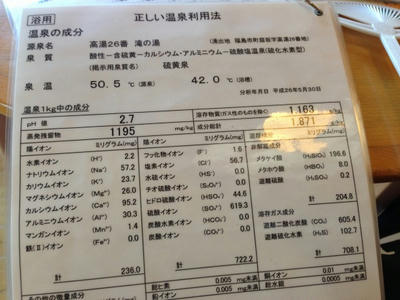 浴用 正しい温泉利用法
温泉の成分
源泉名 高湯26番 滝の湯 (湧出地 福島市町庭坂字高湯26番地)
泉質 酸性－含硫黄－カルシウム・アルミニウム－硫酸塩温泉(硫化水素型)
(掲示用泉質名) 硫黄泉
泉温 50.5℃(源泉) 42.0℃(浴槽)
分析年月日 平成26年5月30日
温泉1kg中の成分
pH値 2.7 溶存物質(ガス性のものを除く) 1.163 g/kg
蒸発残留物 1195 mg/kg 成分総計 1.871 g/kg
陽イオン ミリグラム(mg) 陰イオン ミリグラム(mg) 遊離成分 ミリグラム(mg)
水素イオン (H⁺) 2.2 フッ化物イオン (F⁻) 1.6 非解離成分
ナトリウムイオン (Na⁺) 57.2 塩素イオン (Cl⁻) 56.7 メタケイ酸 (H₂SiO₃) 196.6
カリウムイオン (K⁺) 23.7 水硫イオン (HS⁻) 0.0 メタホウ酸 (HBO₂) 8.0
マグネシウムイオン (Mg²⁺) 26.0 チオ硫酸イオン (S₂O₃²⁻) 0.0 遊離硫酸 (H₂SO₄) 0.2
カルシウムイオン (Ca²⁺) 95.2 ヒドロ硫酸イオン (HSO₄⁻) 44.6
アルミニウムイオン (Al³⁺) 30.3 硫酸イオン (SO₄²⁻) 619.3 計 204.8
マンガンイオン (Mn²⁺) 1.4 炭酸水素イオン (HCO₃⁻) 0.0 溶存ガス成分
鉄(Ⅱ)イオン (Fe²⁺) 0.0 炭酸イオン (CO₃²⁻) 0.0 遊離二酸化炭素 (CO₂) 605.4
遊離硫化水素 (H₂S) 102.7
計 236.0 計 722.2 計 708.1
その他の微量成分 総ヒ素 0.005 mg未満 銅イオン 0.01 mg未満
鉛イオン 0.005 mg未満 総水銀 0.0005 mg未満